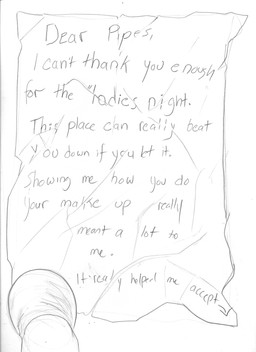 Dear Pipes,
I cant thank you enough
for the "ladies night.
This place can really beat
you down if you let it.
Showing me how you do
your make up really
meant a lot to
me.
It really helped me accept